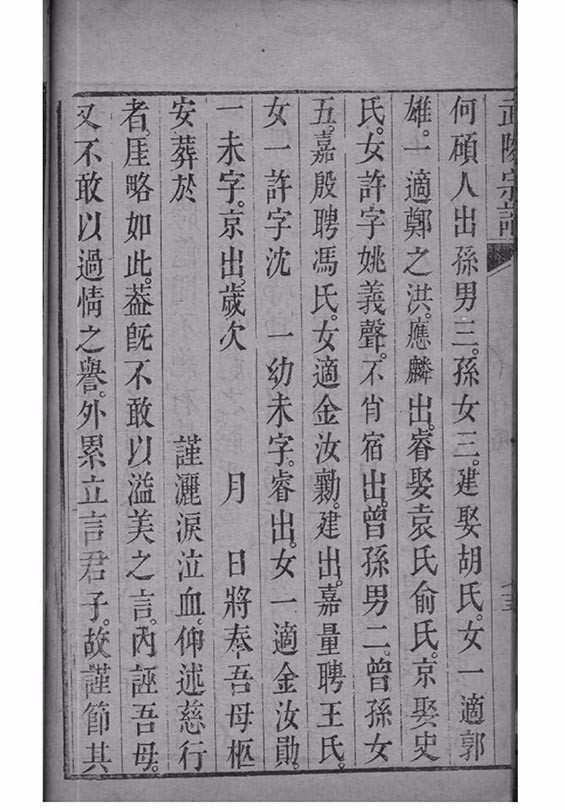 武陵宗譜
何碩人出孫男三。孫女三。建娶胡氏。女一適郭
雄。一適鄭之洪。應麟出。睿娶袁氏俞氏。京娶史
氏。女許字姚義聲。不肖宿出。曾孫男二。曾孫女
五。嘉殷聘馮氏。女適金汝勷。建出。嘉量聘王氏。
女一許字沈　一幼未字。睿出。女一適金汝勛。
一未字。京出。歲次　　　月　日將奉吾母柩
安葬於　　　　　　謹灑淚泣血。仰述慈行
者。厓略如此。葢旣不敢以溢美之言。內誣吾母。
又不敢以過情之譽。外累立言君子。故謹節其